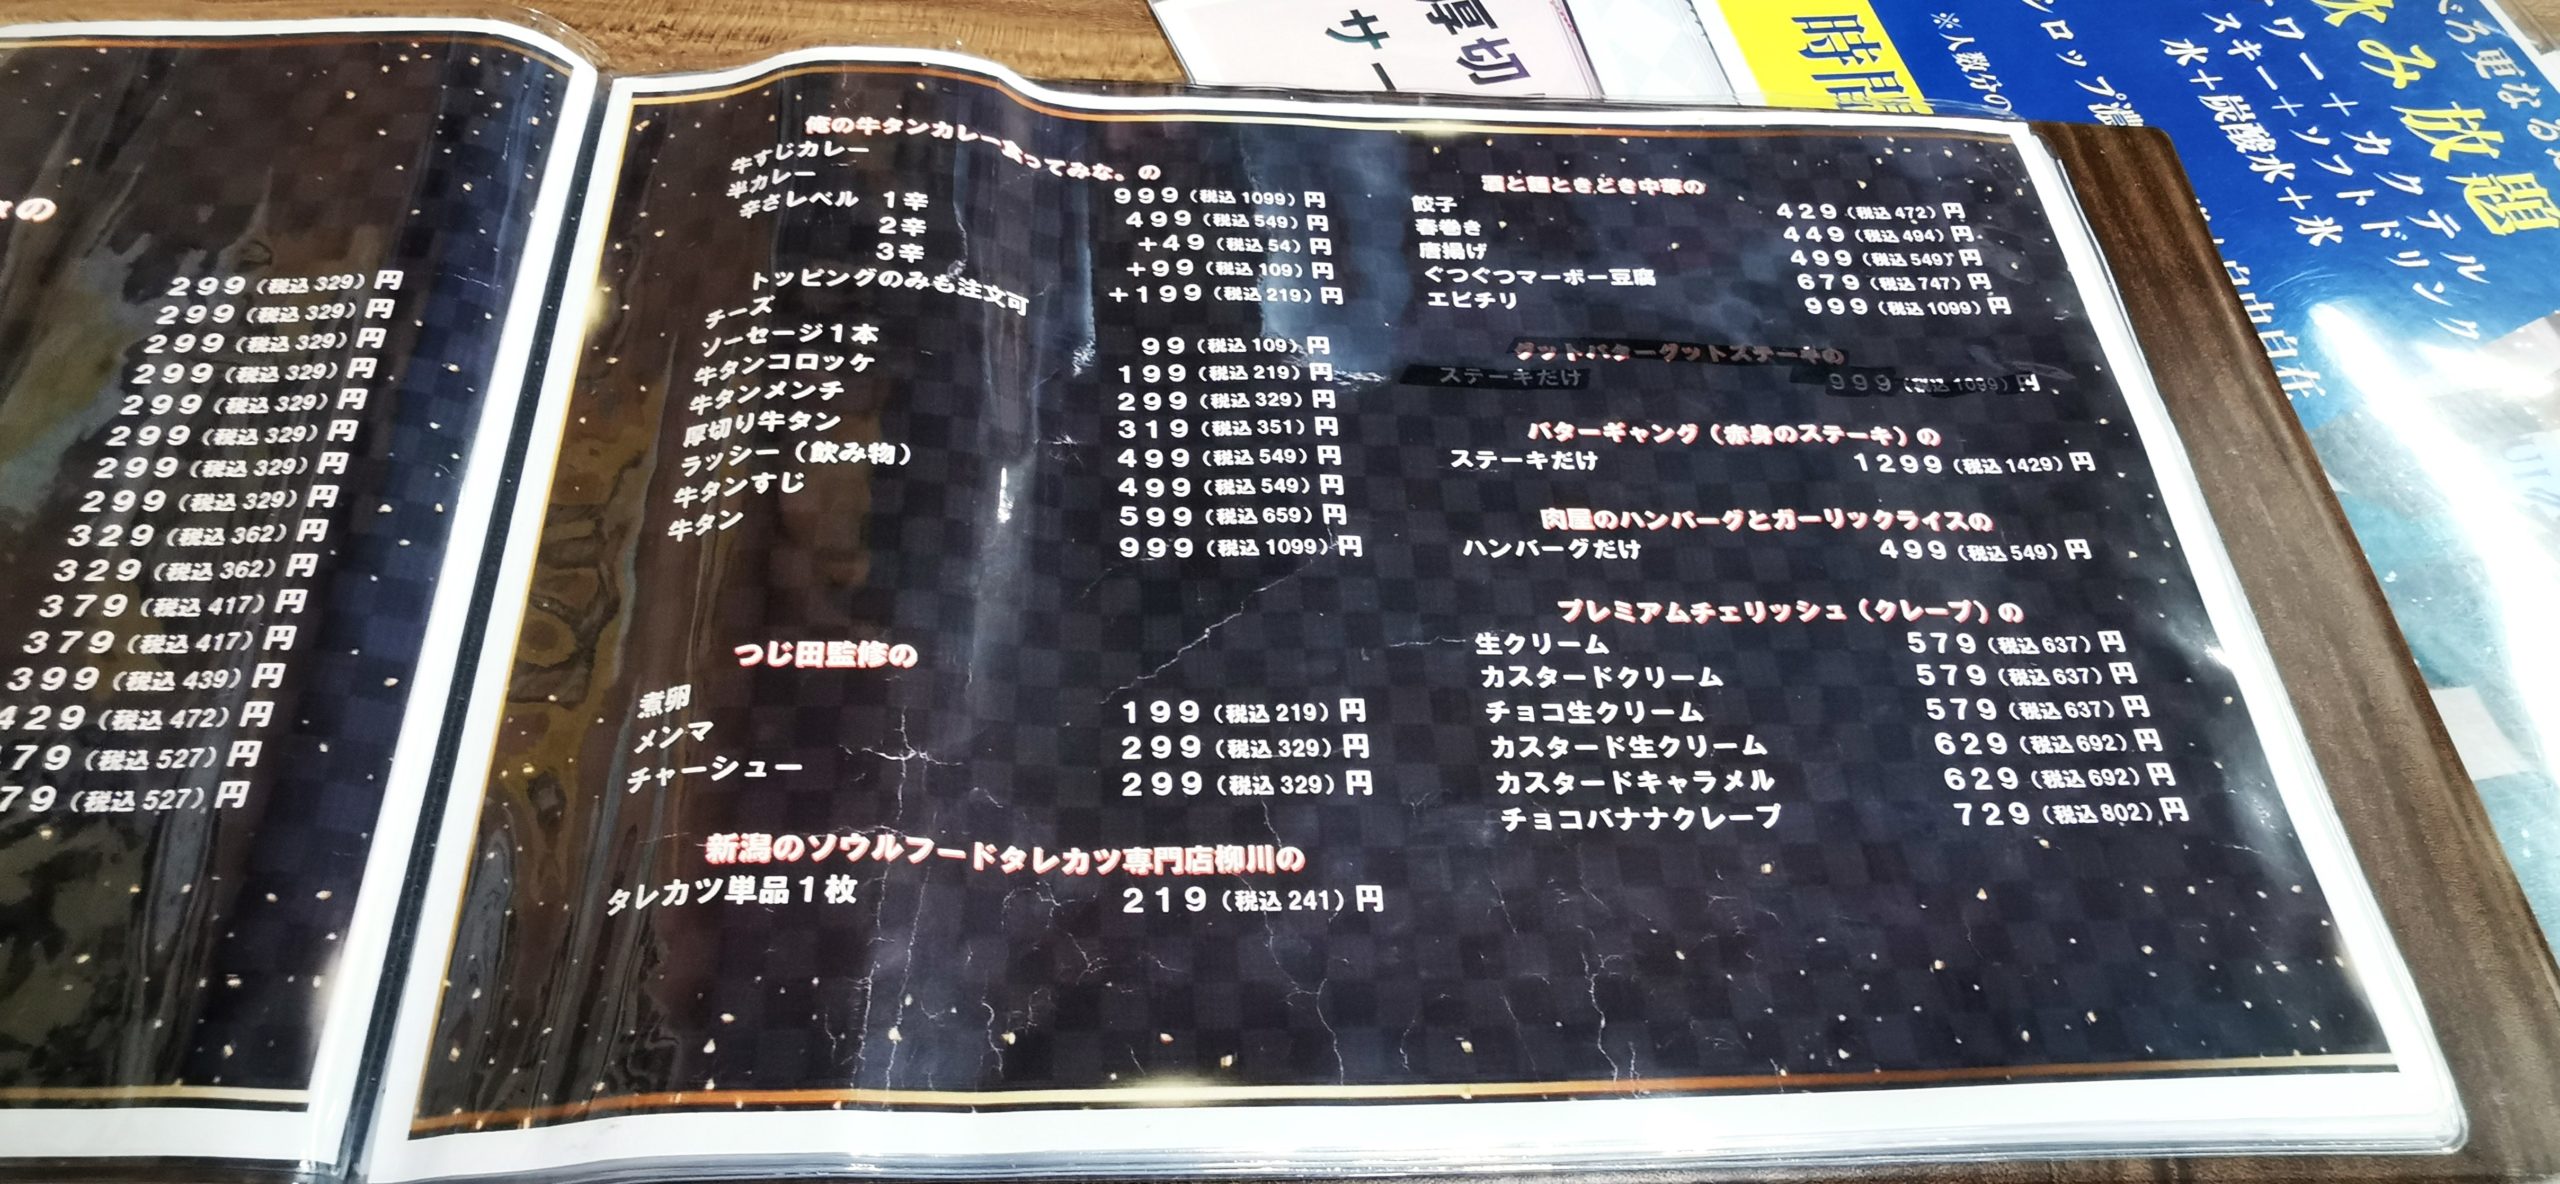 の
299(税込329)円
299(税込329)円
299(税込329)円
299(税込329)円
299(税込329)円
299(税込329)円
299(税込329)円
299(税込329)円
329(税込362)円
329(税込362)円
379(税込417)円
379(税込417)円
399(税込439)円
429(税込472)円
79(税込527)円
79(税込527)円
俺の牛タンカレー食ってみな。の
牛すじカレー 999(税込1099)円
半カレー 499(税込549)円
辛さレベル 1辛 +49(税込54)円
2辛 +99(税込109)円
3辛 +199(税込219)円
トッピングのみも注文可
チーズ 99(税込109)円
ソーセージ1本 199(税込219)円
牛タンコロッケ 299(税込329)円
牛タンメンチ 319(税込351)円
厚切り牛タン 499(税込549)円
ラッシー(飲み物) 499(税込549)円
牛タンすじ 599(税込659)円
牛タン 999(税込1099)円
つじ田監修の
煮卵 199(税込219)円
メンマ 299(税込329)円
チャーシュー 299(税込329)円
新潟のソウルフードタレカツ専門店柳川の
タレカツ単品1枚 219(税込241)円
酒と麺ときどき中華の
餃子 429(税込472)円
春巻き 449(税込494)円
唐揚げ 499(税込549)円
ぐつぐつマーボー豆腐 679(税込747)円
エビチリ 999(税込1099)円
グットバターグットステーキの
ステーキだけ 999(税込1099)円
バターギャング(赤身のステーキ)の
ステーキだけ 1299(税込1429)円
肉屋のハンバーグとガーリックライスの
ハンバーグだけ 499(税込549)円
プレミアムチェリッシュ(クレープ)の
生クリーム 579(税込637)円
カスタードクリーム 579(税込637)円
チョコ生クリーム 579(税込637)円
カスタード生クリーム 629(税込692)円
カスタードキャラメル 629(税込692)円
チョコバナナクレープ 729(税込802)円
厚切
サー
時間
飲み放題
ワー+カクテル
スキー+ソフトドリンク
水+炭酸水+氷
※人数分の
シロップ濃
自由自在